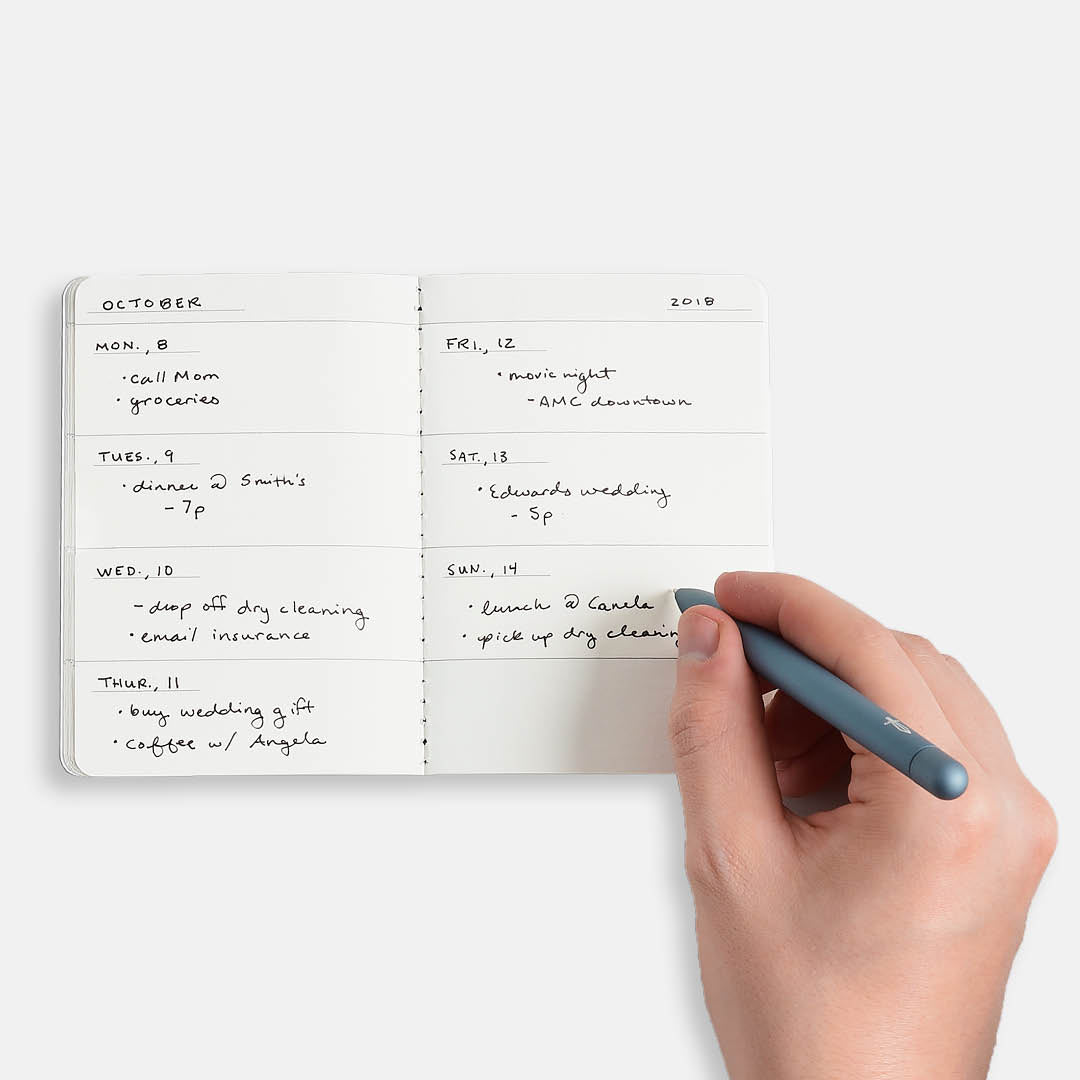 OCTOBER
MON., 8
• call Mom
• groceries
TUES., 9
• dinner @ Smith's
- 7p
WED., 10
- drop off dry cleaning
• email insurance
THUR., 11
• buy wedding gift
• coffee w/ Angela
2018
FRI., 12
• movie night
- AMC downtown
SAT., 13
• Edwards wedding
- 5p
SUN., 14
• lunch @ Canela
• pick up dry cleanin